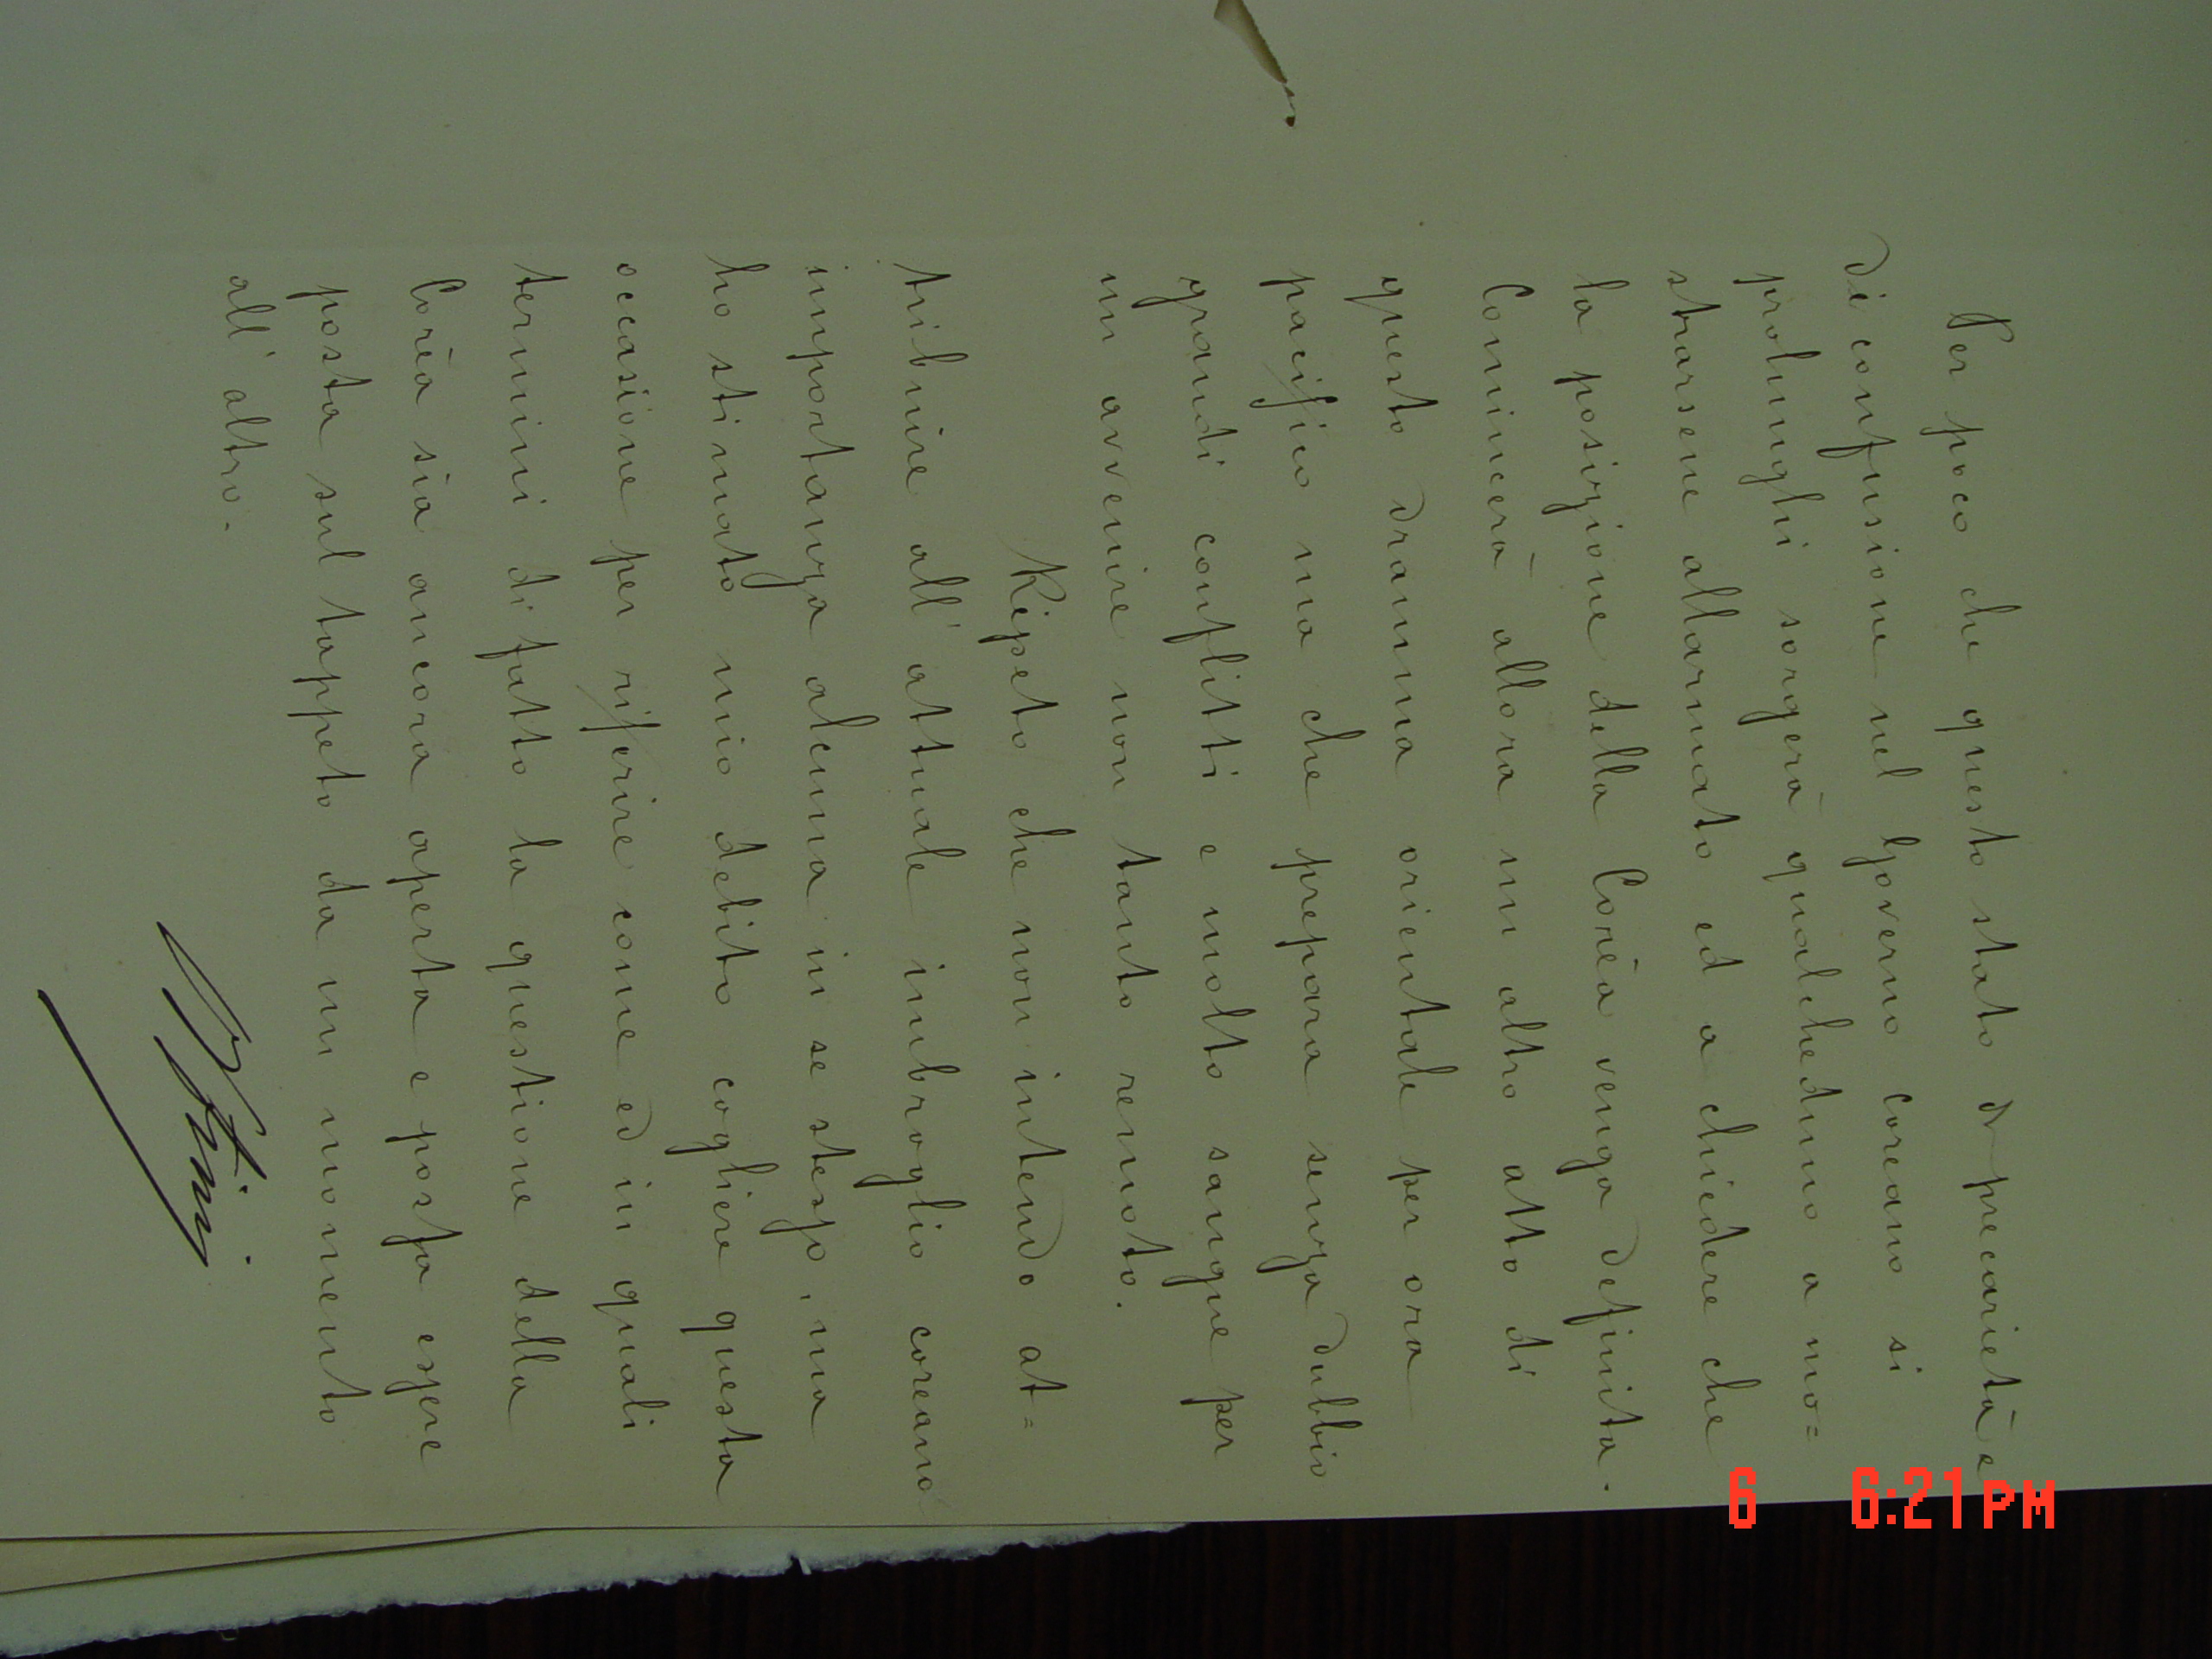 Per poco che questo stato di precarietà e
di confusione nel Governo coreano si
prolunghi sorgerà qualcheduno a mo=
strarsene allarmato ed a chiedere che
la posizione della Corèa venga definita.
Comincerà allora un altro atto di
questo dramma orientale per ora
pacifico ma che prepara senza dubbio
grandi conflitti e molto sangue per
un avvenire non tanto remoto.
Ripeto che non intendo at=
tribuire all'attuale imbroglio coreano
importanza alcuna in se stesso, ma
ho stimato mio debito cogliere questa
occasione per riferire come ed in quali
termini di fatto la questione della
Corèa sia ancora aperta e possa essere
posta sul tappeto da un momento
all'altro.
6 6:21PM